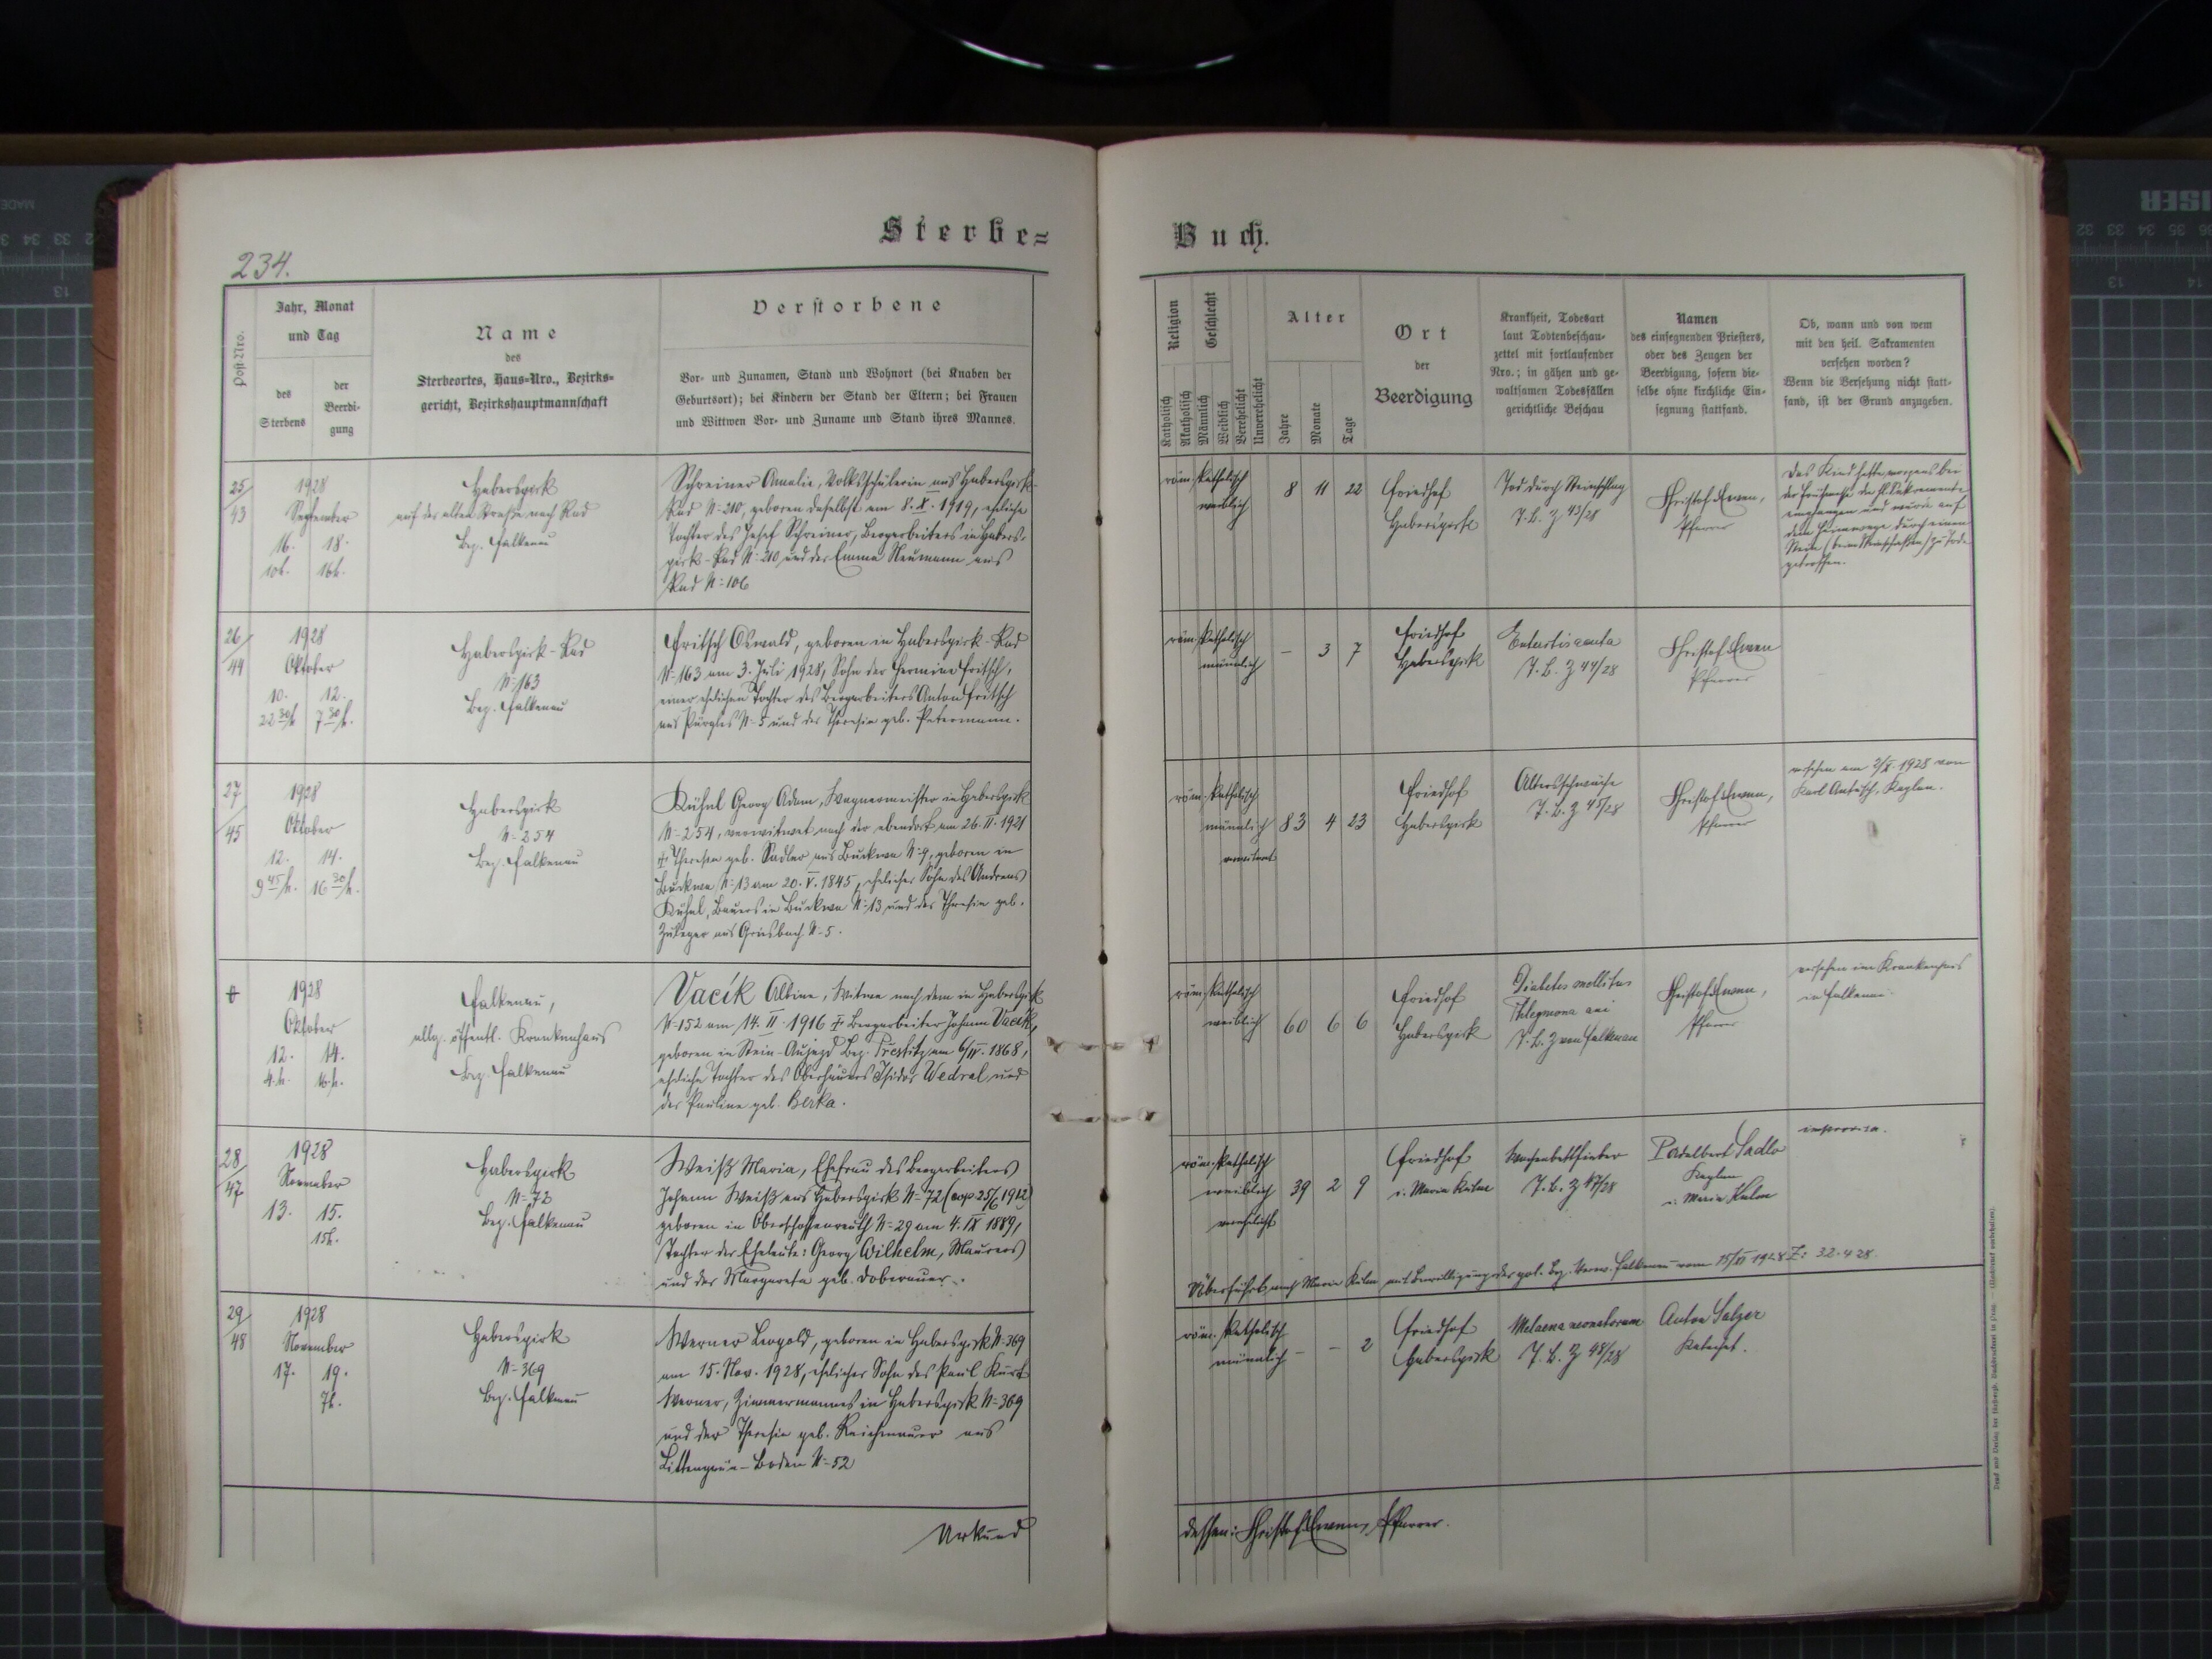 Sterbe=
Buch.
234.
Post-Nro.
Jahr, Monat
und Tag
des
Sterbens
der
Beerdi-
gung
Name
des
Sterbeortes, Haus=Nro., Bezirks=
gericht, Bezirkshauptmannschaft
Verstorbene
Vor- und Zunamen, Stand und Wohnort (bei Knaben der
Geburtsort); bei Kindern der Stand der Eltern; bei Frauen
und Wittwen Vor- und Zuname und Stand ihres Mannes.
Religion
Katholisch
Akatholisch
Geschlecht
Männlich
Weiblich
Verehelicht
Unverehelicht
Alter
Jahre
Monate
Tage
Ort
der
Beerdigung
Krankheit, Todesart
laut Todtenbeschau-
zettel mit fortlaufender
Nro.; in gähen und ge-
waltsamen Todesfällen
gerichtliche Beschau
Namen
des einsegnenden Priesters,
oder des Zeugen der
Beerdigung, sofern die-
selbe ohne kirchliche Ein-
segnung stattfand.
Ob, wann und von wem
mit den heil. Sakramenten
versehen worden?
Wenn die Versehung nicht statt-
fand, ist der Grund anzugeben.
25/43
1928
September
16. 18.
10h. 16h.
Habersgirk
auf der alten Straße nach Rad
Bez. Falkenau
Schreiner Amalie, Volksschülerin aus Habersgirk-
Rad N=210, geboren daselbst am 8.X.1919, eheliche
Tochter des Josef Schreiner, Bergarbeiters in Habers-
girk-Rad N=210 und der Emma Neumann aus
Rad N=106
röm. katholisch
weiblich
8 11 22
Friedhof
Habersgirk
Tod durch Steinschlag
T.B.Z 43/28
Christof
Pfarrer
Das Kind hatte morgens bei
der Frühmesse die hl. Sakramente
empfangen und wurde auf
dem Heimwege durch einen
Stein (beim Steinschießen) zu Tode
getroffen.
26/44
1928
Oktober
10. 12.
22 30/h 7 30/h.
Habersgirk-Rad
N=163
Bez. Falkenau
Fritsch Oswald, geboren in Habersgirk-Rad
N=163 am 3. Juli 1928, Sohn der Hermine Fritsch,
einer ehelichen Tochter des Bergarbeiters Anton Fritsch
aus Pürgles N=5 und der Theresia geb. Petermann.
röm. katholisch
männlich
– 3 7
Friedhof
Habersgirk
acuta
T.B.Z 44/28
Christof
Pfarrer
27/45
1928
Oktober
12. 14.
9 45/h. 16 30/h.
Habersgirk
N=254
Bez. Falkenau
Kühnl Georg Adam, Wagnermeister in Habersgirk
N=254, verwitwet nach der ebendort am 26.II.1921
† Theresia geb. Sadler aus Buckwa N=9, geboren in
Buckwa N=13 am 20.V.1845, ehelicher Sohn des Andreas
Kühnl, Bauers in Buckwa N=13 und der Theresia geb.
Zuleger aus Grasbach N=5.
röm. katholisch
männlich
verwitwet
83 4 23
Friedhof
Habersgirk
Altersschwäche
T.B.Z 45/28
Christof
Pfarrer
versehen am 2/X. 1928 von
Karl Kaplan.
†
1928
Oktober
12. 14.
4h. 16h.
Falkenau,
allg. öffentl. Krankenhaus
Bez. Falkenau
Vacík Albine, Witwe nach dem in Habersgirk
N=152 am 14.II.1916 † Bergarbeiter Johann Vacík,
geboren in Stein-Aujezd Bez. Prestitz am 6/IV.1868,
eheliche Tochter des Oberhäuers Isidor Wedral und
der Pauline geb. Berka.
röm. katholisch
weiblich
60 6 6
Friedhof
Habersgirk
Diabetes mellitus
Phlegmona ani
T.B.Z von Falkenau
Christof
Pfarrer
versehen im Krankenhaus
in Falkenau
28/47
1928
November
13. 15.
15h.
Habersgirk
N=72
Bez. Falkenau
Weiß Maria, Ehefrau des Bergarbeiters
Johann Weiß aus Habersgirk N=72 (cop 25/6 1912)
geboren in Oberschossenreuth N=29 am 4.IX 1889,
Tochter der Eheleute: Georg Wilhelm, Maurers
und der Margareta geb. Doberauer.
röm. katholisch
weiblich
verehelicht
39 2 9
Friedhof
i. Maria Kulm
Wochenbettfieber
T.B.Z 47/28
P. Adalbert Sadlo
Kaplan
i. Maria Kulm
improvisa.
Überführt nach Maria Kulm mit Bewilligung der pol. Bez. Verw. Falkenau vom 15/XI 1928 Z: 32.428.
29/48
1928
November
17. 19.
7h.
Habersgirk
N=369
Bez. Falkenau
Werner Leopold, geboren in Habersgirk N=369
am 15. Nov. 1928, ehelicher Sohn des Paul Kurt
Werner, Zimmermannes in Habersgirk N=369
und der Theresia geb. Reichenauer aus
Littengrün-Boden N=52
röm. katholisch
männlich
– – 2
Friedhof
Habersgirk
Melaena neonatorum
T.B.Z 48/28
Anton Salzer
Katechet.
Urkund
dessen: Christof Pfarrer.